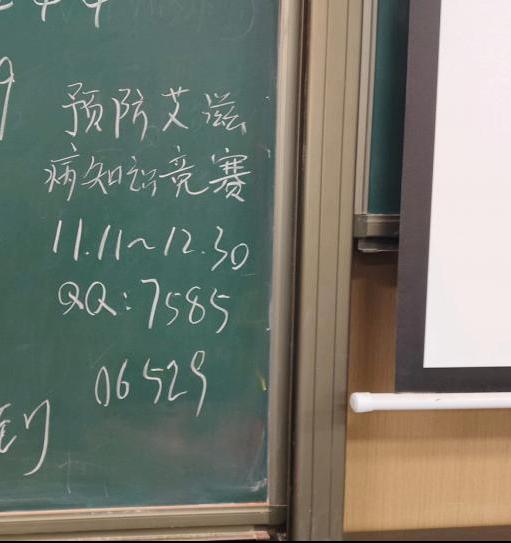 预防艾滋
病知识竞赛
11.11~12.30
QQ:7585
06529